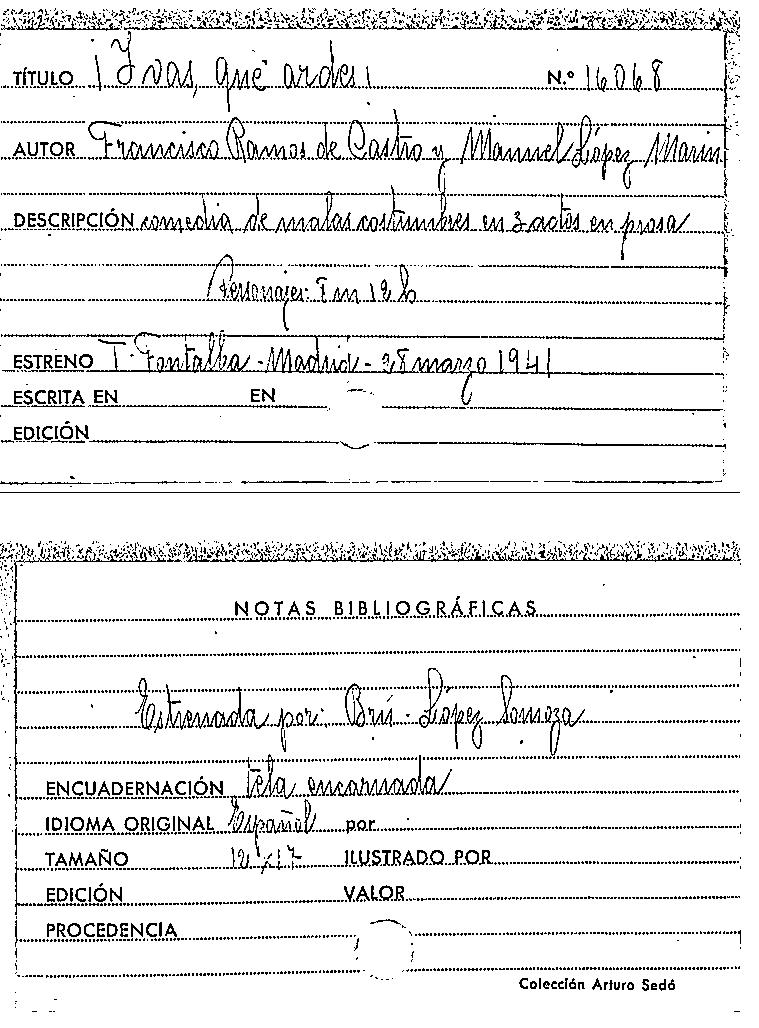 TÍTULO ¡Y vas, que ardes! N.º 16068
AUTOR Francisco Ramos de Castro y Manuel López Marin
DESCRIPCIÓN comedia de malas costumbres en 3 actos en prosa
Personajes: 8 m 12 h
ESTRENO T. Fontalba - Madrid - 28 marzo 1941
ESCRITA EN EN
EDICIÓN
NOTAS BIBLIOGRÁFICAS
Estrenada por: Brú - López Somoza
ENCUADERNACIÓN tela encarnada
IDIOMA ORIGINAL Español por
TAMAÑO 12 x 17 ILUSTRADO POR
EDICIÓN VALOR
PROCEDENCIA
Colección Arturo Sedó